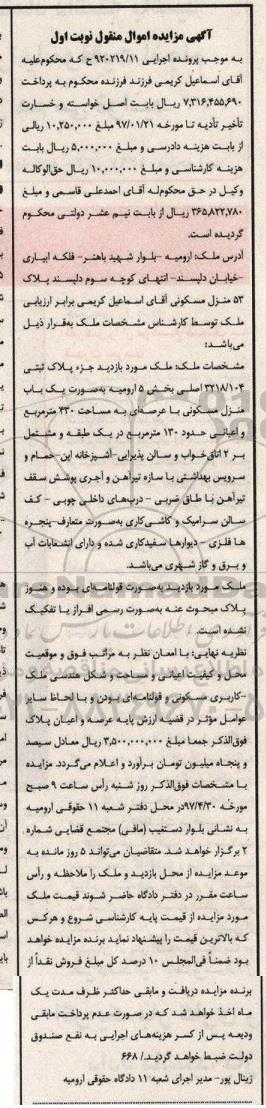 آگهی مزایده اموال منقول نوبت اول
به موجب پرونده اجرایی ۹۲۰۲۱۹/۱۱ ح که محکوم‌علیه
آقای اسماعیل کریمی فرزند فرزنده محکوم به پرداخت
۷,۳۱۶,۴۵۵,۶۹۰ ریال بابت اصل خواسته و خسارت
تأخیر تأدیه تا مورخه ۹۷/۰۱/۲۱ مبلغ ۱۰,۲۵۰,۰۰۰ ریالی
از بابت هزینه دادرسی و مبلغ ۵,۰۰۰,۰۰۰ ریال بابت
هزینه کارشناسی و مبلغ ۱۰,۰۰۰,۰۰۰ ریال حق‌الوکاله
وکیل در حق محکوم‌له آقای احمدعلی قاسمی و مبلغ
۳۶۵,۸۲۲,۷۸۰ ریال از بابت نیم عشر دولتی محکوم
گردیده است.
آدرس ملک: ارومیه -بلوار شهید باهنر- فلکه ابیاری
-خیابان دلپسند- انتهای کوچه سوم دلپسند پلاک
۵۳ منزل مسکونی آقای اسماعیل کریمی برابر ارزیابی
ملک توسط کارشناس مشخصات ملک به‌قرار ذیل
می‌باشد:
مشخصات ملک: ملک مورد بازدید جزء پلاک ثبتی
۳۲۱۸/۱۰۴ اصلی بخش ۵ ارومیه به‌صورت یک باب
منزل مسکونی با عرصه‌ای به مساحت ۲۳۰ مترمربع
و اعیانی حدود ۱۳۰ مترمربع در یک طبقه و مشتمل
بر ۲ اتاق‌خواب و سالن پذیرایی-آشپزخانه اپن-حمام و
سرویس بهداشتی با سازه تیرآهن و آجری پوشش سقف
تیرآهن با طاق ضربی - درب‌های داخلی چوبی - کف
سالن سرامیک و کاشی‌کاری به‌صورت متعارف-پنجره
ها فلزی - دیوارها سفیدکاری شده و دارای انشعابات آب
و برق و گاز شهری می‌باشد.
ملک مورد بازدید به‌صورت قولنامه‌ای بوده و هنوز
پلاک مبحوث عنه به‌صورت رسمی افراز یا تفکیک
نشده است.
نظریه نهایی: با امعان نظر به مراتب فوق و موقعیت
محل و کیفیت اعیانی و مساحت و شکل هندسی ملک
-کاربری مسکونی و قولنامه‌ای بودن و با لحاظ سایر
عوامل مؤثر در قضیه ارزش پایه عرصه و اعیان پلاک
فوق‌الذکر جمعا مبلغ ۳,۵۰۰,۰۰۰,۰۰۰ ریال معادل سیصد
و پنجاه میلیون تومان برآورد و اعلام می‌گردد. مزایده
با مشخصات فوق‌الذکر روز شنبه رأس ساعت ۹ صبح
مورخه ۹۷/۴/۳۰در محل دفتر شعبه ۱۱ حقوقی ارومیه
به نشانی بلوار دستغیب (مافی) مجتمع قضایی شماره
۲ برگزار خواهد شد. متقاضیان می‌تواند ۵ روز مانده به
موعد مزایده از محل بازدید و ملک را ملاحظه و رأس
ساعت مقرر در دفتر دادگاه حاضر شوند قیمت ملک
مورد مزایده از قیمت پایه کارشناسی شروع و هرکس
که بالاترین قیمت را پیشنهاد نماید برنده مزایده خواهد
بود ضمناً فی‌المجلس ۱۰ درصد کل مبلغ فروش نقداً از
برنده مزایده دریافت و مابقی حداکثر ظرف مدت یک
ماه اخذ خواهد شد که در صورت عدم پرداخت مابقی
ودیعه پس از کسر هزینه‌های اجرایی به نفع صندوق
دولت ضبط خواهد گردید./ ۶۶۸
زینال پور- مدیر اجرای شعبه ۱۱ دادگاه حقوقی ارومیه